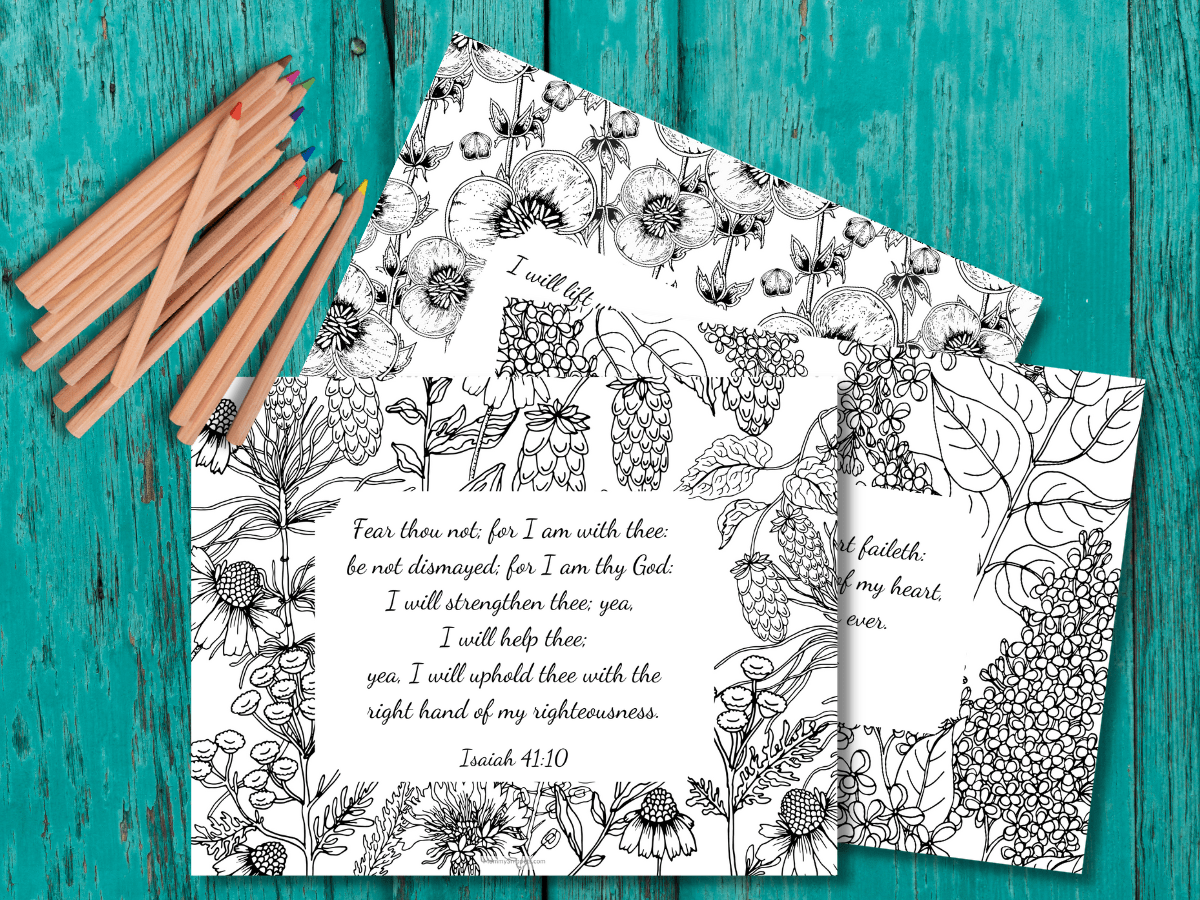 I will lift
Fear thou not; for I am with thee:
be not dismayed; for I am thy God:
I will strengthen thee; yea,
I will help thee;
yea, I will uphold thee with the
right hand of my righteousness.
Isaiah 41:10
faileth:
of my heart,
ever.